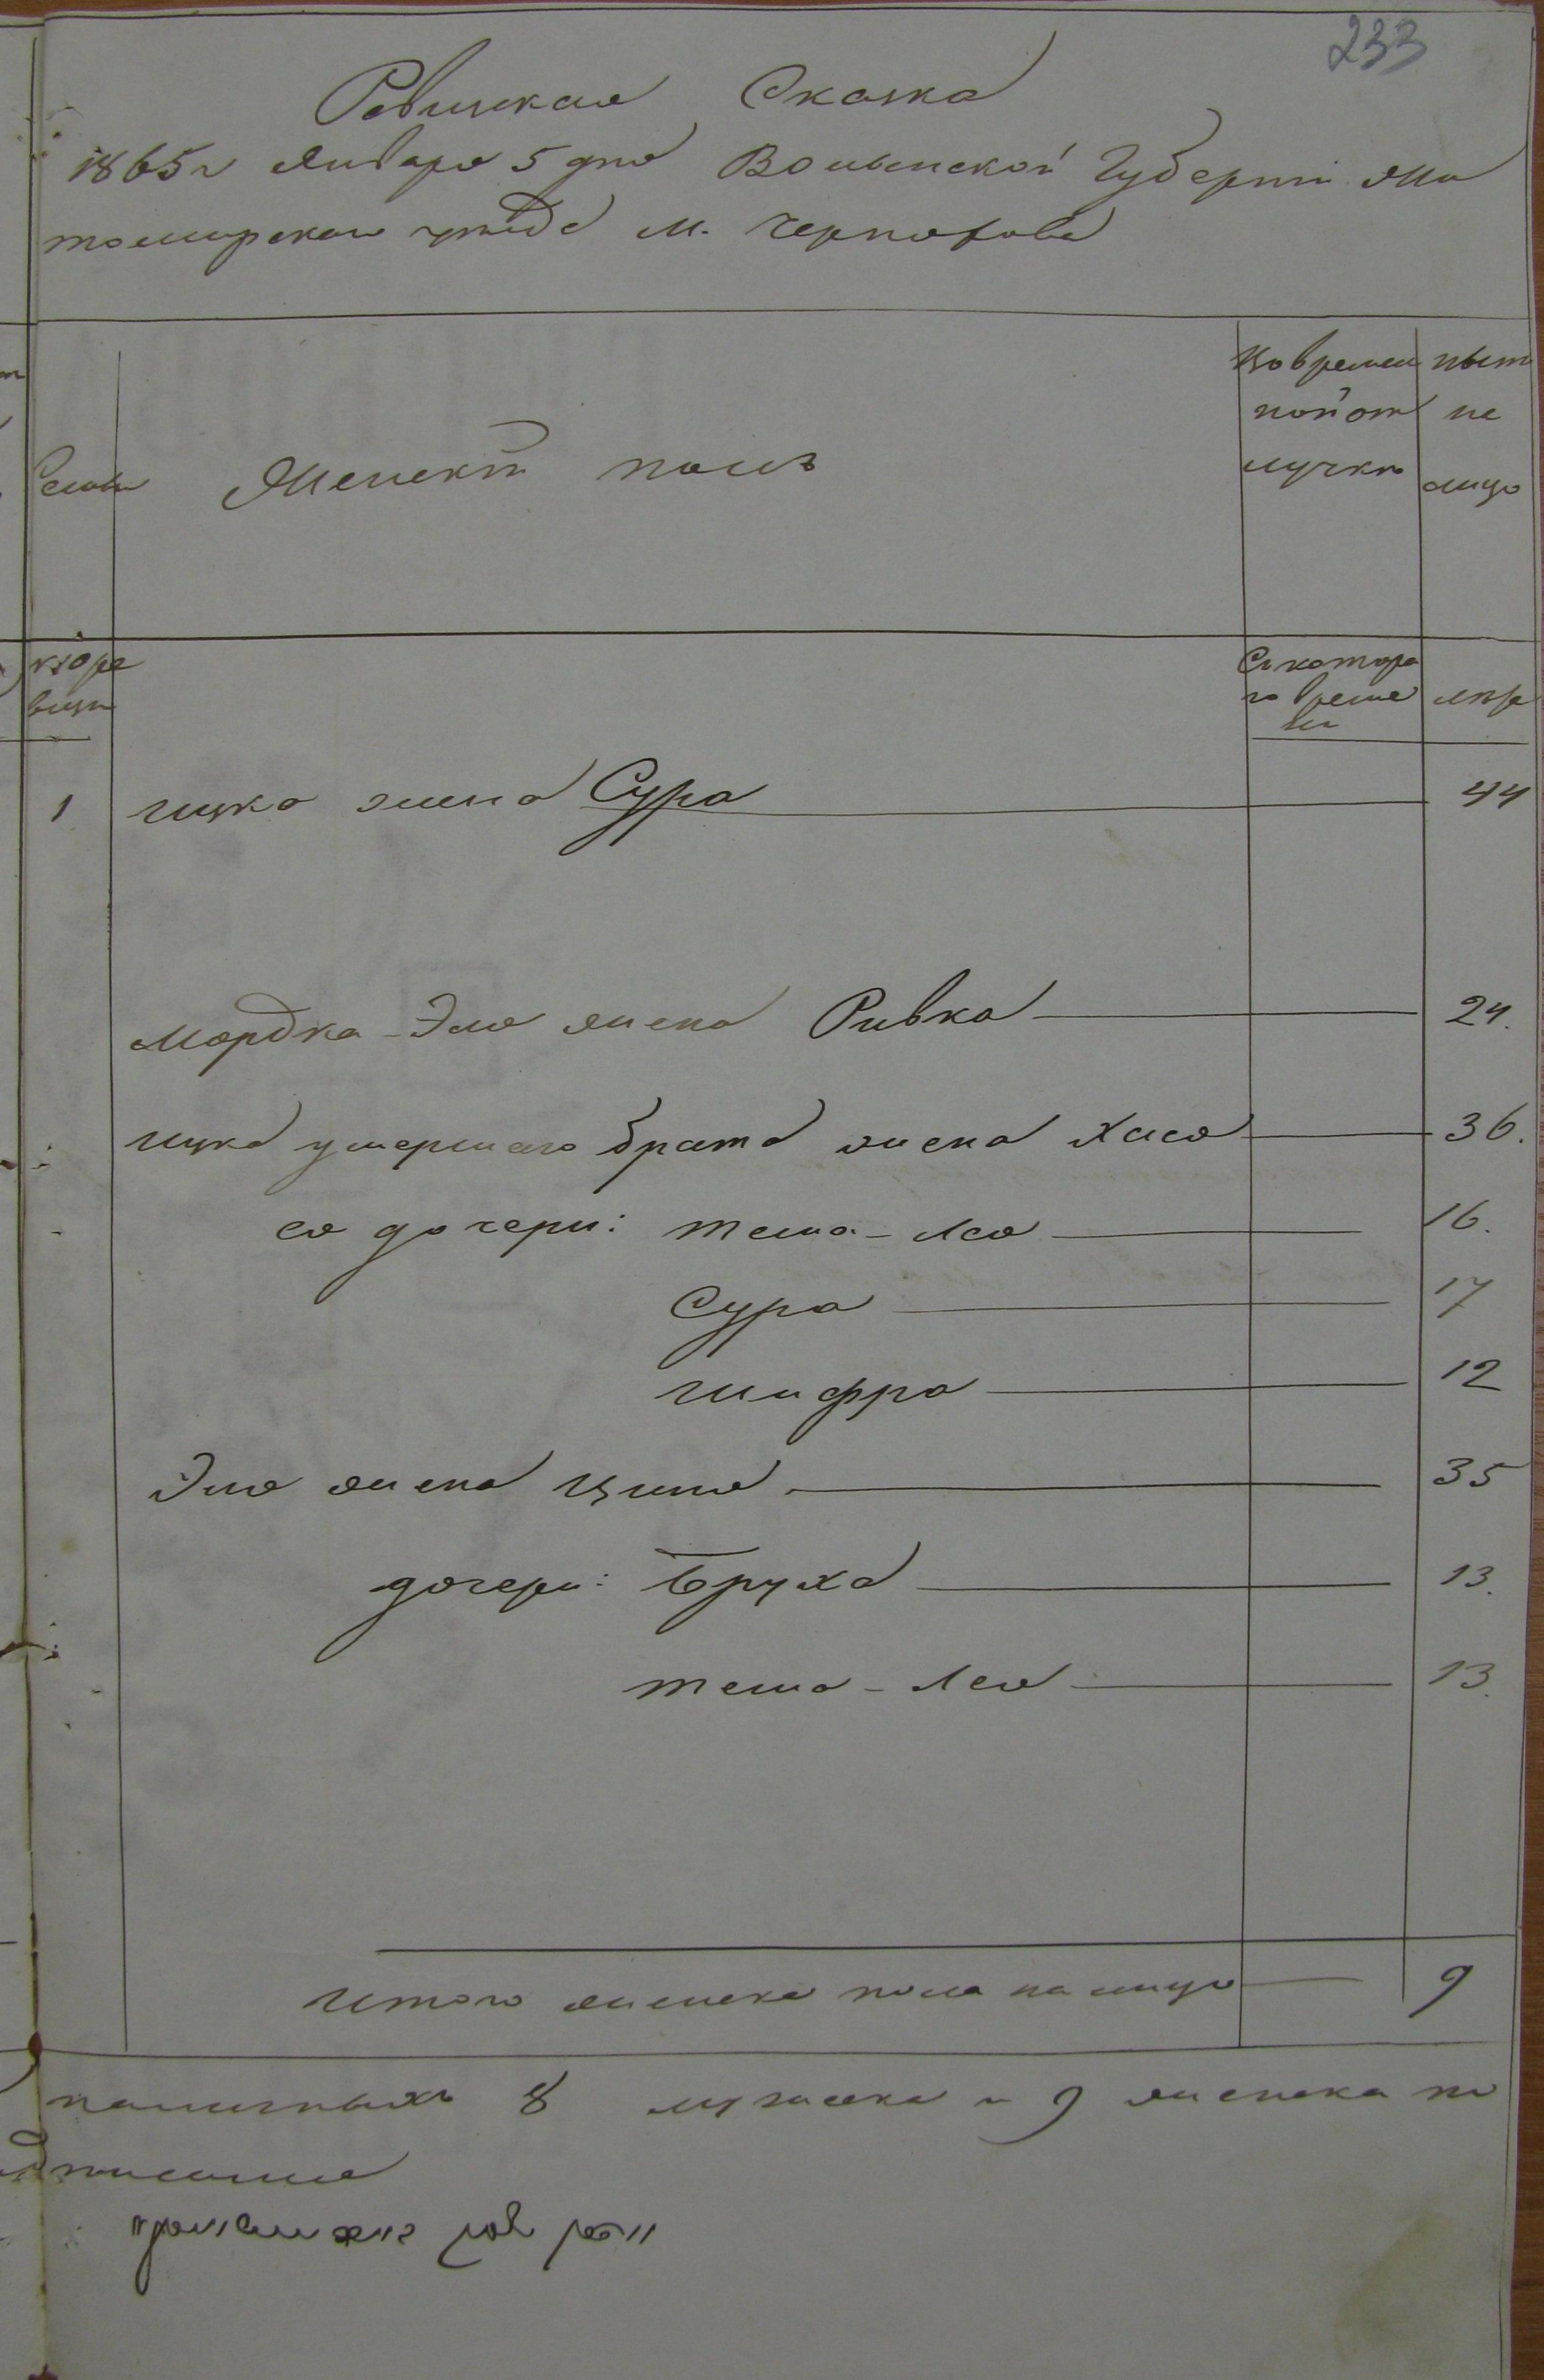 233
Ревизская Сказка
1865 г Января 5 дня Волынской Губерніи Жи
томирскаго уезда м. Черняхова
Семьи
Женскій полъ
Во времен
ной от
лучкѣ
ныне
на
лицо
по ре
визіи
Съ котора
го време
ни
летъ
1 Ицка жена Сура 44
Мордка-Эля жена Ривка 24.
Ицка умершаго брата жена Хася 36.
ея дочери: Тема-Лея 16.
Сура 17
Шифра 12
Эля жена Ципа 35
дочери: Бруха 13.
Тема-Лея 13.
Итого женска пола на лицо 9
наличныхъ 8 мужеска и 9 женска по